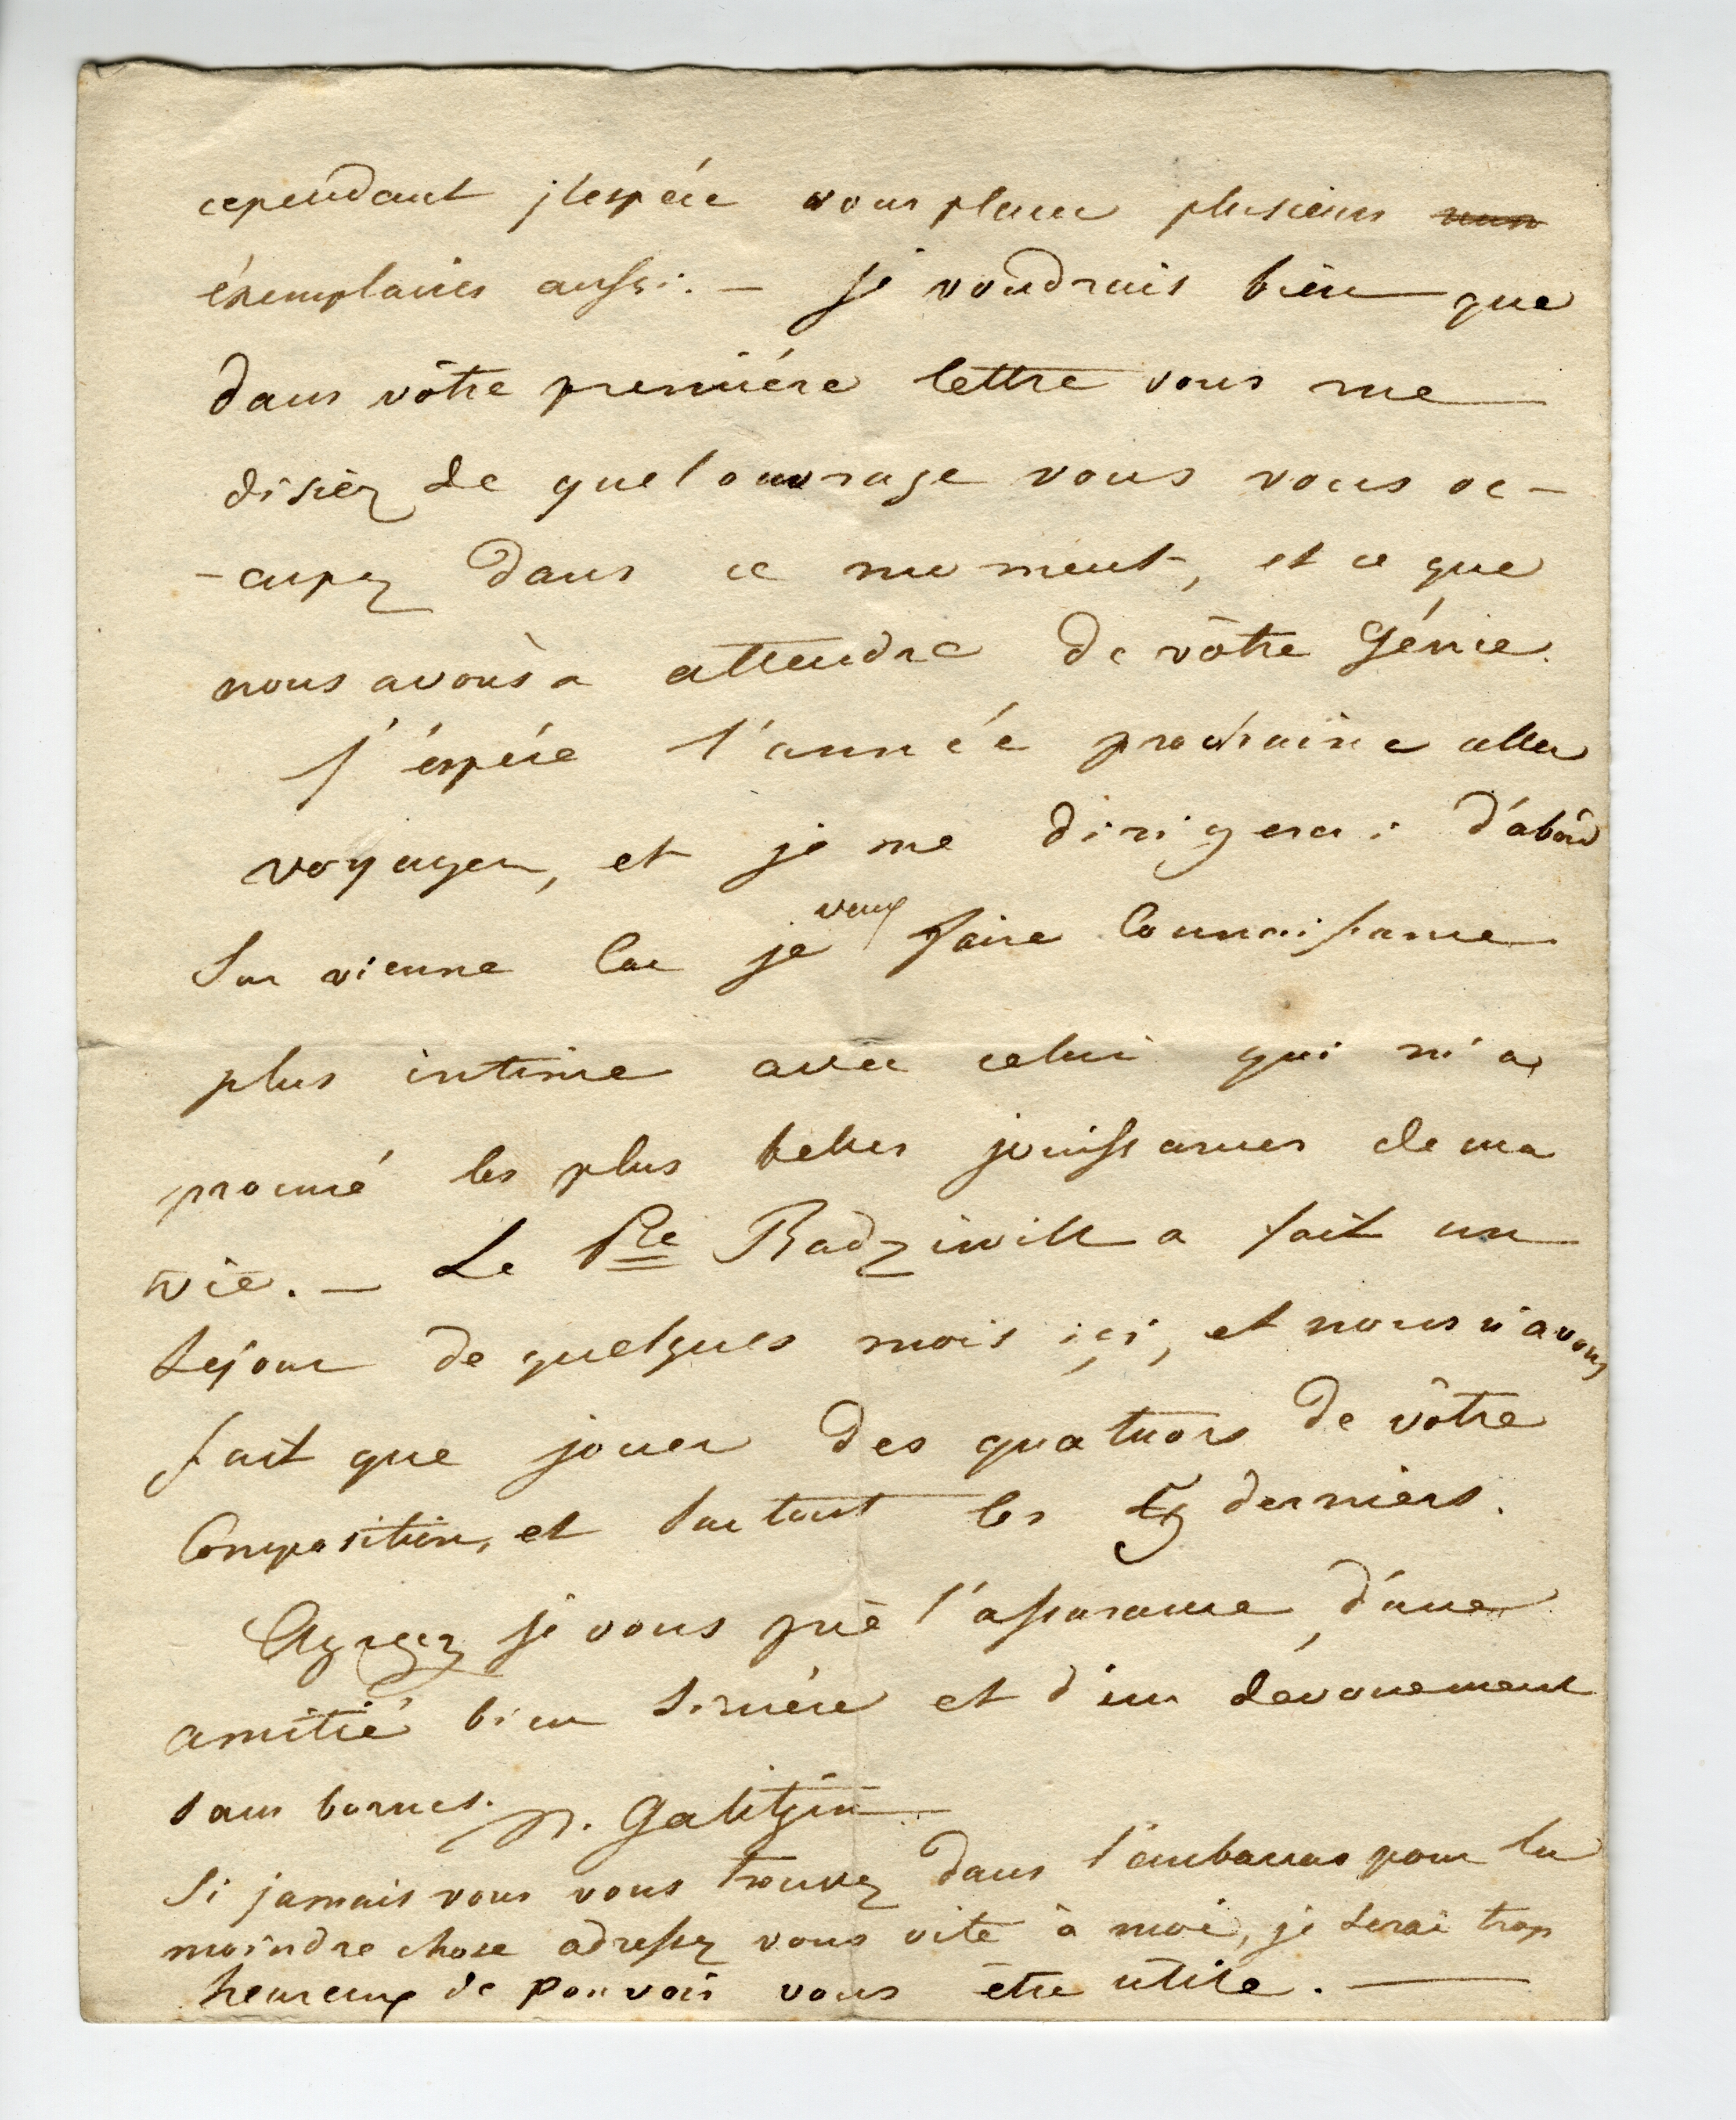 cependant j'espére vous placer plusieurs
éxemplaires aussi. — je voudrais bien que
dans vôtre premiére lettre vous me
disiez de quel ouvrage vous vous oc-
-cupez dans ce moment, et ce que
nous avons à attendre de vôtre Génie.
J'éspére l'année prochaine aller
voyager, et je me dirigerai d'abord
sur vienne car je veux faire connaissance
plus intime avec celui qui m'a
procuré les plus belles jouissances de ma
vie. — Le Pce Radziwill a fait un
séjour de quelques mois içi, et nous n'avons
fait que jouer des quatuors de vôtre
Composition, et surtout les derniers.
Agréez je vous prie l'assurance d'une
amitié bien sincére et d'un dévouement
sans bornes. P. N. Galitzin
Si jamais vous vous trouvez dans l'embarras pour la
moindre chose adressez vous vite à moi, je serai trop
heureux de pouvoir vous être utile. —